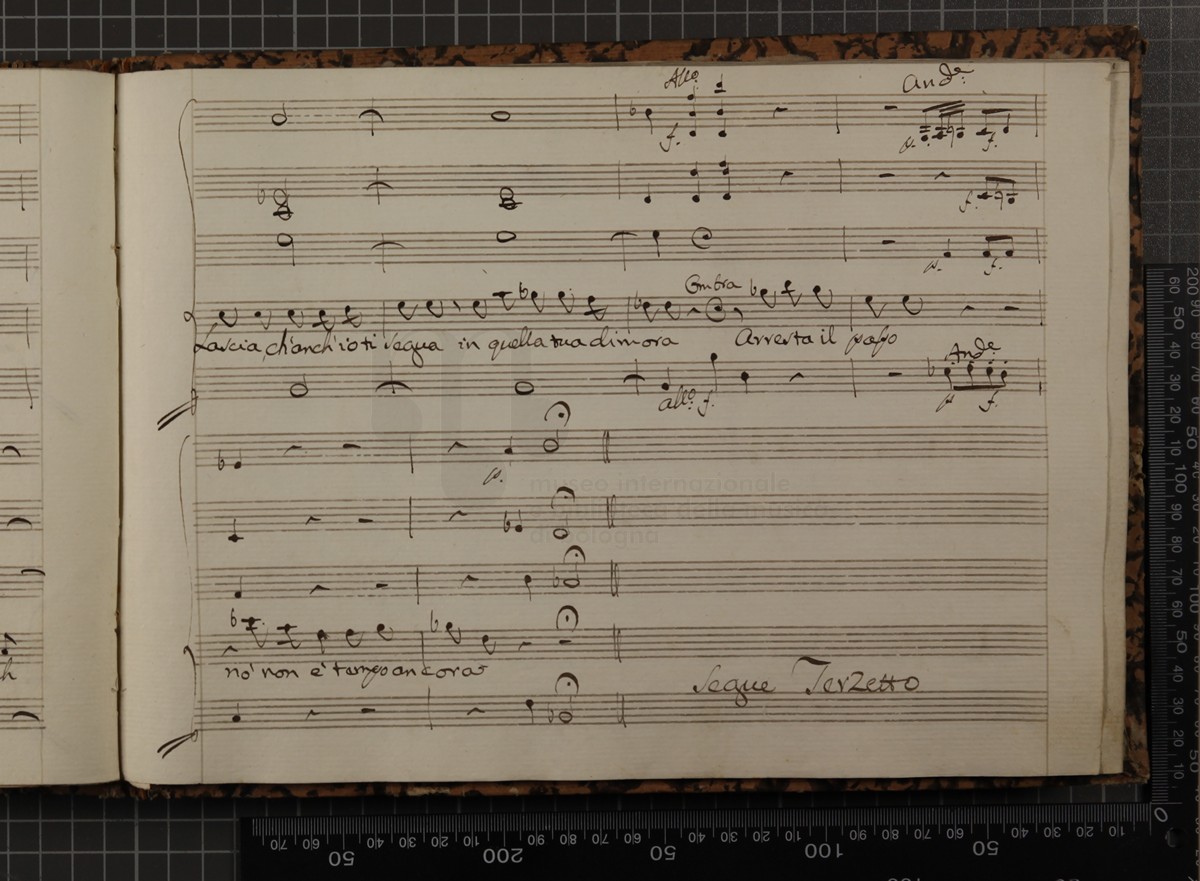 All.o And.e
f. p. f.
f.
p. f.
Ombra
Lascia, ch'anch'io ti segua in quella tua dimora Arresta il passo
And.e
all.o f. p. f.
p.
museo internazionale
e biblioteca della musica
di bologna
nò non è tempo ancora
Segue Terzetto